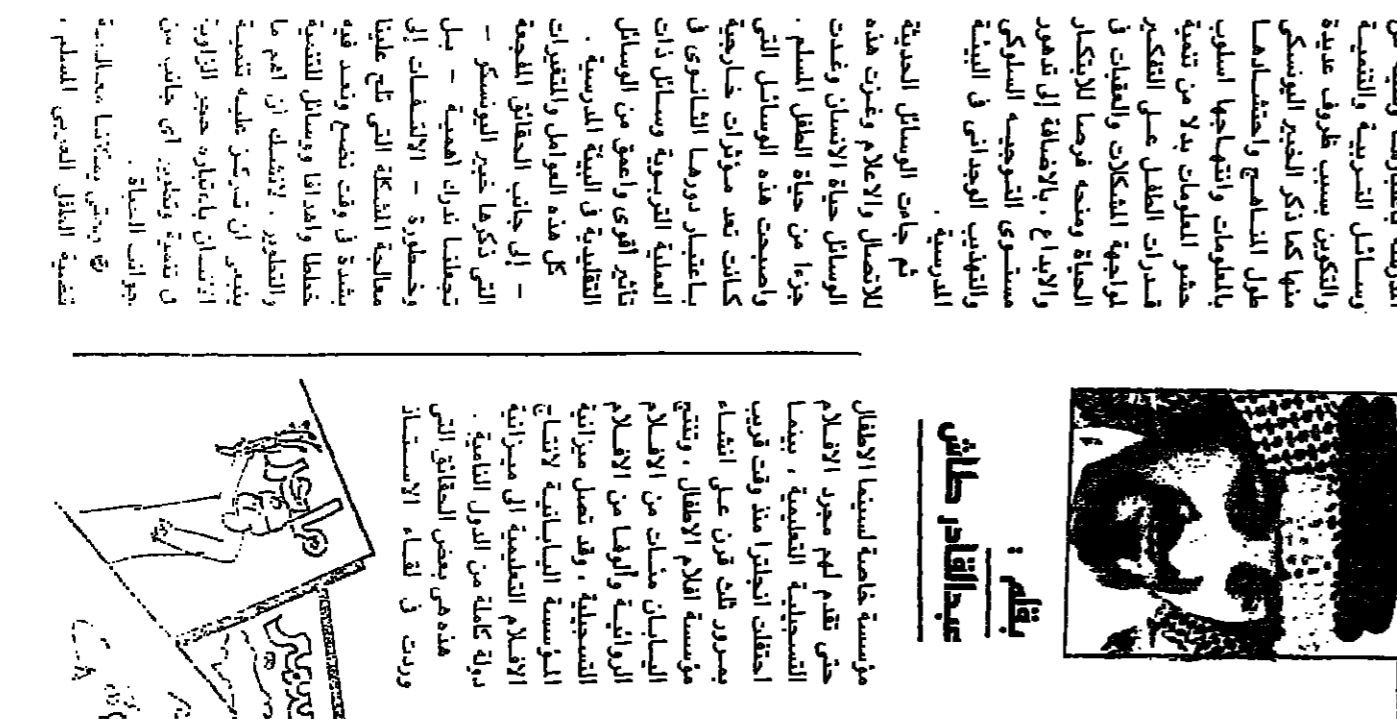 بقلم :
عبدالقادر طاش
مؤسسة خاصة لسينما الاطفال
حتى تقدم لهم مجرد الافلام
التسجيلية التعليمية ، بينما
احتفلت انجلترا منذ وقت قريب
بمرور ثلث قرن على انشاء
مؤسسة افلام الاطفال ، وتنتج
اليابان مئات من الافلام
الروائية وألوفا من الافلام
التسجيلية ، وقد تصل ميزانية
المؤسسة اليابانية لانتاج
الافلام التعليمية الى ميزانية
دولة كاملة من الدول النامية .
هذه هى بعض الحقائق التى
وردت فى لقاء الاستاذ
وسائل التربية والتنمية
والتكوين بسبب ظروف عديدة
منها كما ذكر الخبير اليونسكى
طول المناهج واحتشادها
بالمعلومات وانتهاجها اسلوب
حشو المعلومات بدلا من تنمية
قدرات الطفل على التفكير
لمواجهة المشكلات والعقبات فى
الحياة ومنحه فرصا للابتكار
والابداع ، بالاضافة إلى تدهور
مستوى التوجيه السلوكى
والتهذيب الوجدانى فى البيئة
المدرسية .
ثم جاءت الوسائل الحديثة
للاتصال والاعلام وغزت هذه
الوسائل حياة الانسان وغدت
جزءا من حياة الطفل المسلم .
واصبحت هذه الوسائل التى
كانت تعد مؤثرات خارجية
باعتبار دورها الثانوى فى
العملية التربوية وسائل ذات
تأثير أقوى واعمق من الوسائل
التقليدية فى البيئة المدرسية .
كل هذه العوامل والمتغيرات
– إلى جانب الحقائق المفجعة
التى ذكرها خبير اليونسكو –
تجعلنا ندرك أهمية – بل
وخطورة – الالتفات إلى
معالجة المشكلة التى تلح علينا
بشدة فى وقت نضع ونعد فيه
خططا واهدافا ووسائل للتنمية
والتطوير ، لاشك أن أهم ما
ينبغى أن تركز عليه تنمية
الانسان باعتباره حجر الزاوية
فى تنمية وتطوير أى جانب من
جوانب الحياة .
قضية الطفل العربى المسلم .